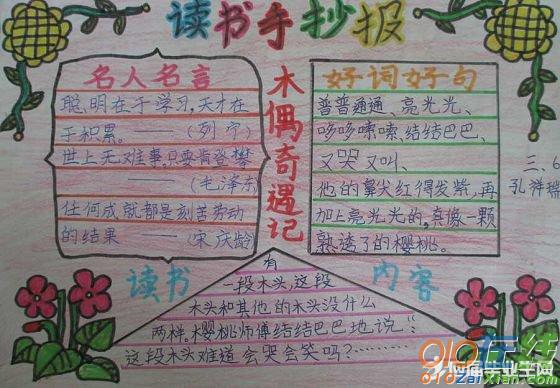 读书手抄报
木偶奇遇记
名人名言
聪、明在于学习,天才在
于积累。——(列宁)
世上无难事,只要肯登攀
——(毛泽东)
任何成就都是刻苦劳动
的结果——(宋庆龄)
好词好句
普普通通、亮光光、
哆哆嗦嗦、结结巴巴、
又哭又叫、
他的鼻尖红得发紫,再
加上亮光光的,真像一颗
熟透了的樱桃。
三、6
孔祥瑞
读书
内容
有
一段木头,这段
木头和其他的木头没什么
两样,樱桃师傅结结巴巴地说“:
这段木头难道会哭会笑吗?……